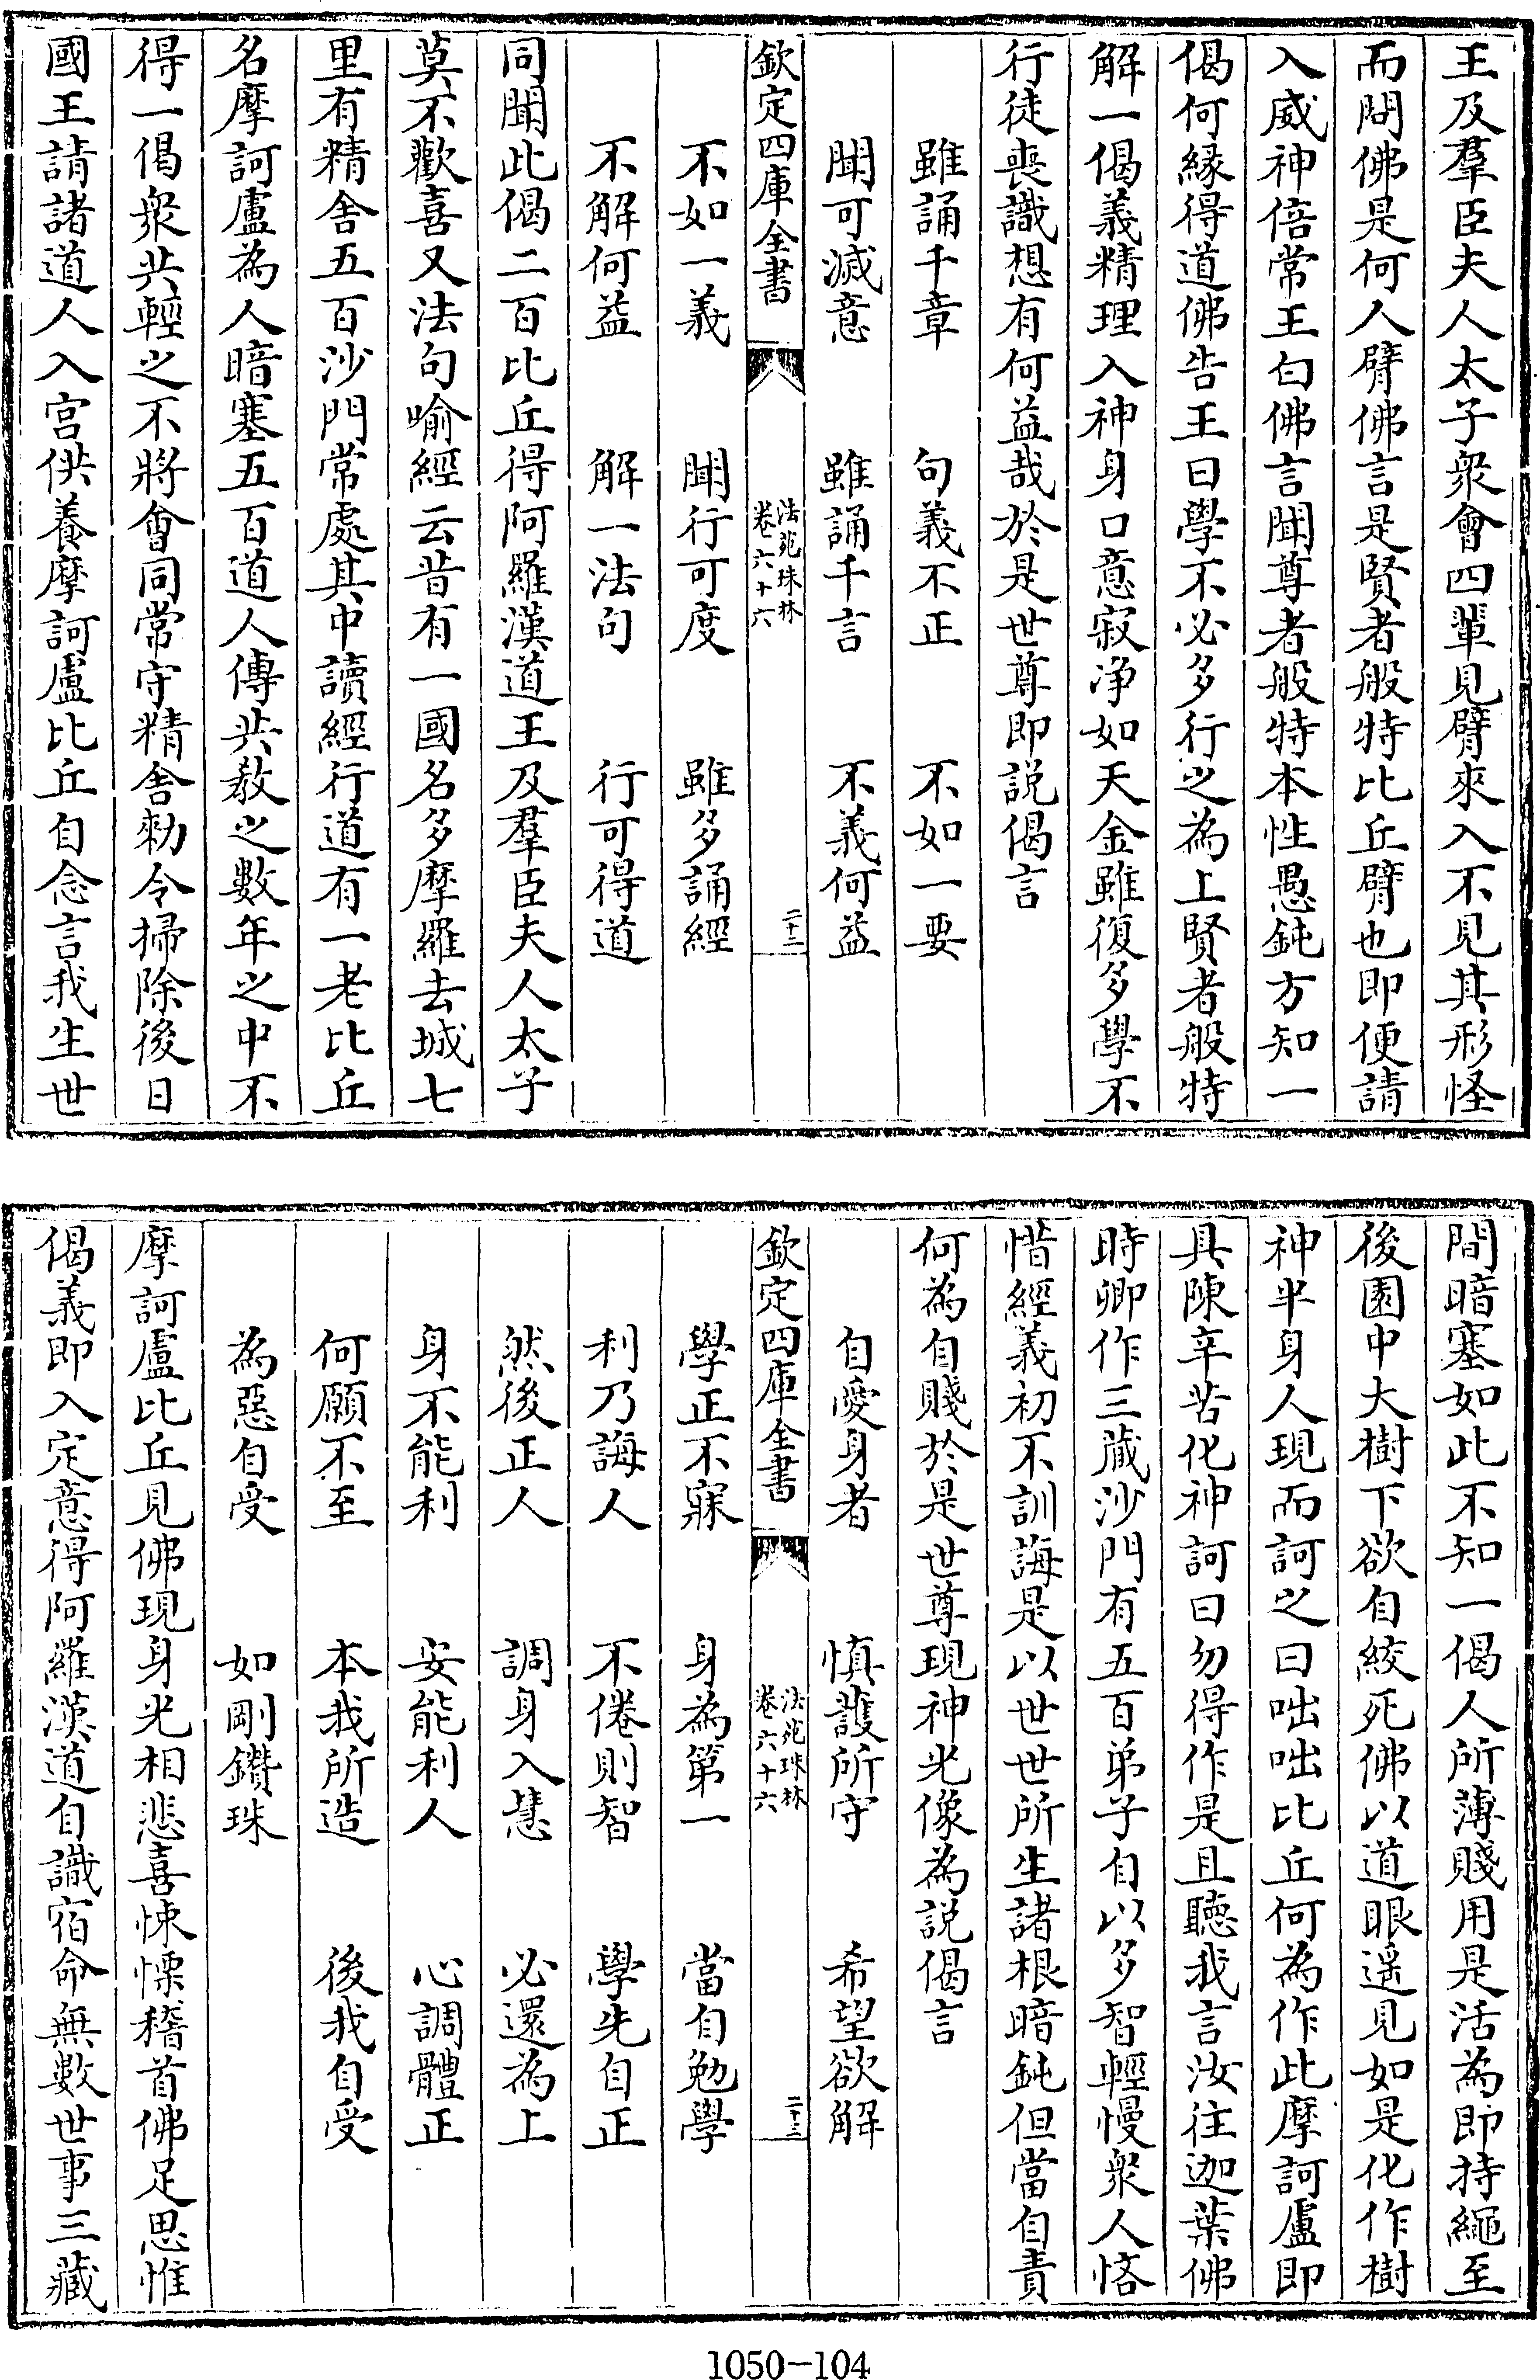 王及羣臣夫人太子衆會四輩見臂來入不見其形怪
而問佛是何人臂佛言是賢者般特比丘臂也即便請
入威神倍常王白佛言聞尊者般特本性愚鈍方知一
偈何緣得道佛告王曰學不必多行之為上賢者般特
解一偈義精理入神身口意寂净如天金雖復多學不
行徒喪識想有何益哉於是世尊即説偈言
雖誦千章　句義不正　不如一要
聞可滅意　雖誦千言　不義何益
欽定四庫全書　法苑珠林卷六十六　二十二
不如一義　聞行可度　雖多誦經
不解何益　解一法句　行可得道
同聞此偈二百比丘得阿羅漢道王及羣臣夫人太子
莫不歡喜又法句喻經云昔有一國名多摩羅去城七
里有精舍五百沙門常處其中讀經行道有一老比丘
名摩訶盧為人暗塞五百道人傳共教之數年之中不
得一偈衆共輕之不將會同常守精舍勑令掃除後日
國王請諸道人入宫供養摩訶盧比丘自念言我生世
間暗塞如此不知一偈人所薄賤用是活為即持繩至
後園中大樹下欲自絞死佛以道眼遥見如是化作樹
神半身人現而訶之曰咄咄比丘何為作此摩訶盧即
具陳辛苦化神訶曰勿得作是且聽我言汝往迦葉佛
時卿作三藏沙門有五百弟子自以多智輕慢衆人悋
惜經義初不訓誨是以世世所生諸根暗鈍但當自責
何為自賤於是世尊現神光像為説偈言
自愛身者　慎護所守　希望欲解
欽定四庫全書　法苑珠林卷六十六　二十三
學正不寐　身為第一　當自勉學
利乃誨人　不倦則智　學先自正
然後正人　調身入慧　必還為上
身不能利　安能利人　心調體正
何願不至　本我所造　後我自受
為惡自受　如剛鑽珠
摩訶盧比丘見佛現身光相悲喜悚慄稽首佛足思惟
偈義即入定意得阿羅漢道自識宿命無數世事三藏
1050-104